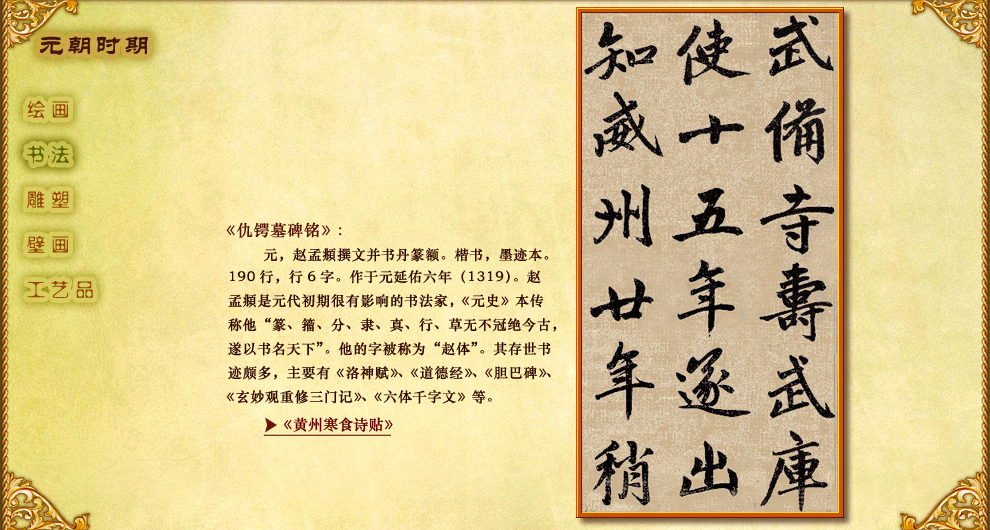 元朝时期
绘画
书法
雕塑
壁画
工艺品
《仇锷墓碑铭》：
元，赵孟頫撰文并书丹篆额。楷书，墨迹本。
190 行，行 6 字。作于元延佑六年（1319）。赵
孟頫是元代初期很有影响的书法家，《元史》本传
称他“篆、籀、分、隶、真、行、草无不冠绝今古，
遂以书名天下”。他的字被称为“赵体”。其存世书
迹颇多，主要有《洛神赋》、《道德经》、《胆巴碑》、
《玄妙观重修三门记》、《六体千字文》等。
《黄州寒食诗贴》
武備寺壽武庫
使十五年遂出
知威州廿年稍